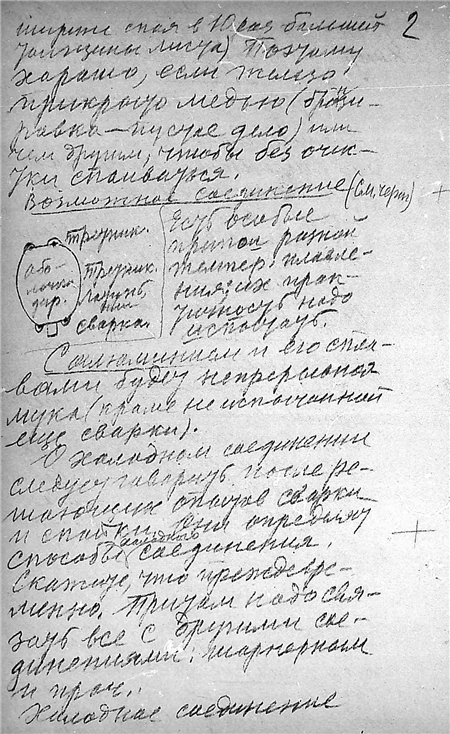 2
ширине спая в 10 раз большей
толщины листа) Поэтому
хорошо, если железо
прикрыто медью (бронзи-
ровка — пустое дело) или
чем другим, чтобы без очис-
тки спаиваться.
Возможное соединение (см. черт)
трезник.
обо-
лочка
дир.
трезник.
сварка.
Есть особые
припои разной
темпер. плавле-
ния; их прак-
тичность надо
испытать.
С алюминием и его спла-
вами будет непрерывная
мука (кроме не испытанной
еще сварки).
О холодном соединении
следует говорить после ре-
шающих опытов сварки
и спайки. Они определят
способы холодного соединения.
Скажете, что преждевре-
менно. Притом надо свя-
зать все с другими сое-
динениями: шарнирным
и проч.
Холодное соединение